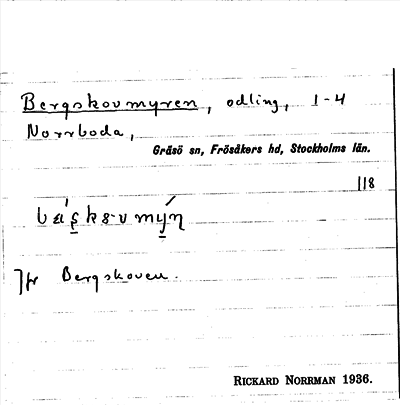 Bergskovmyren, odling, 1-4
Norrboda,
Gräsö sn, Frösåkers hd, Stockholms län.
118
Jfr Bergskoven.
RICKARD NORRMAN 1936.